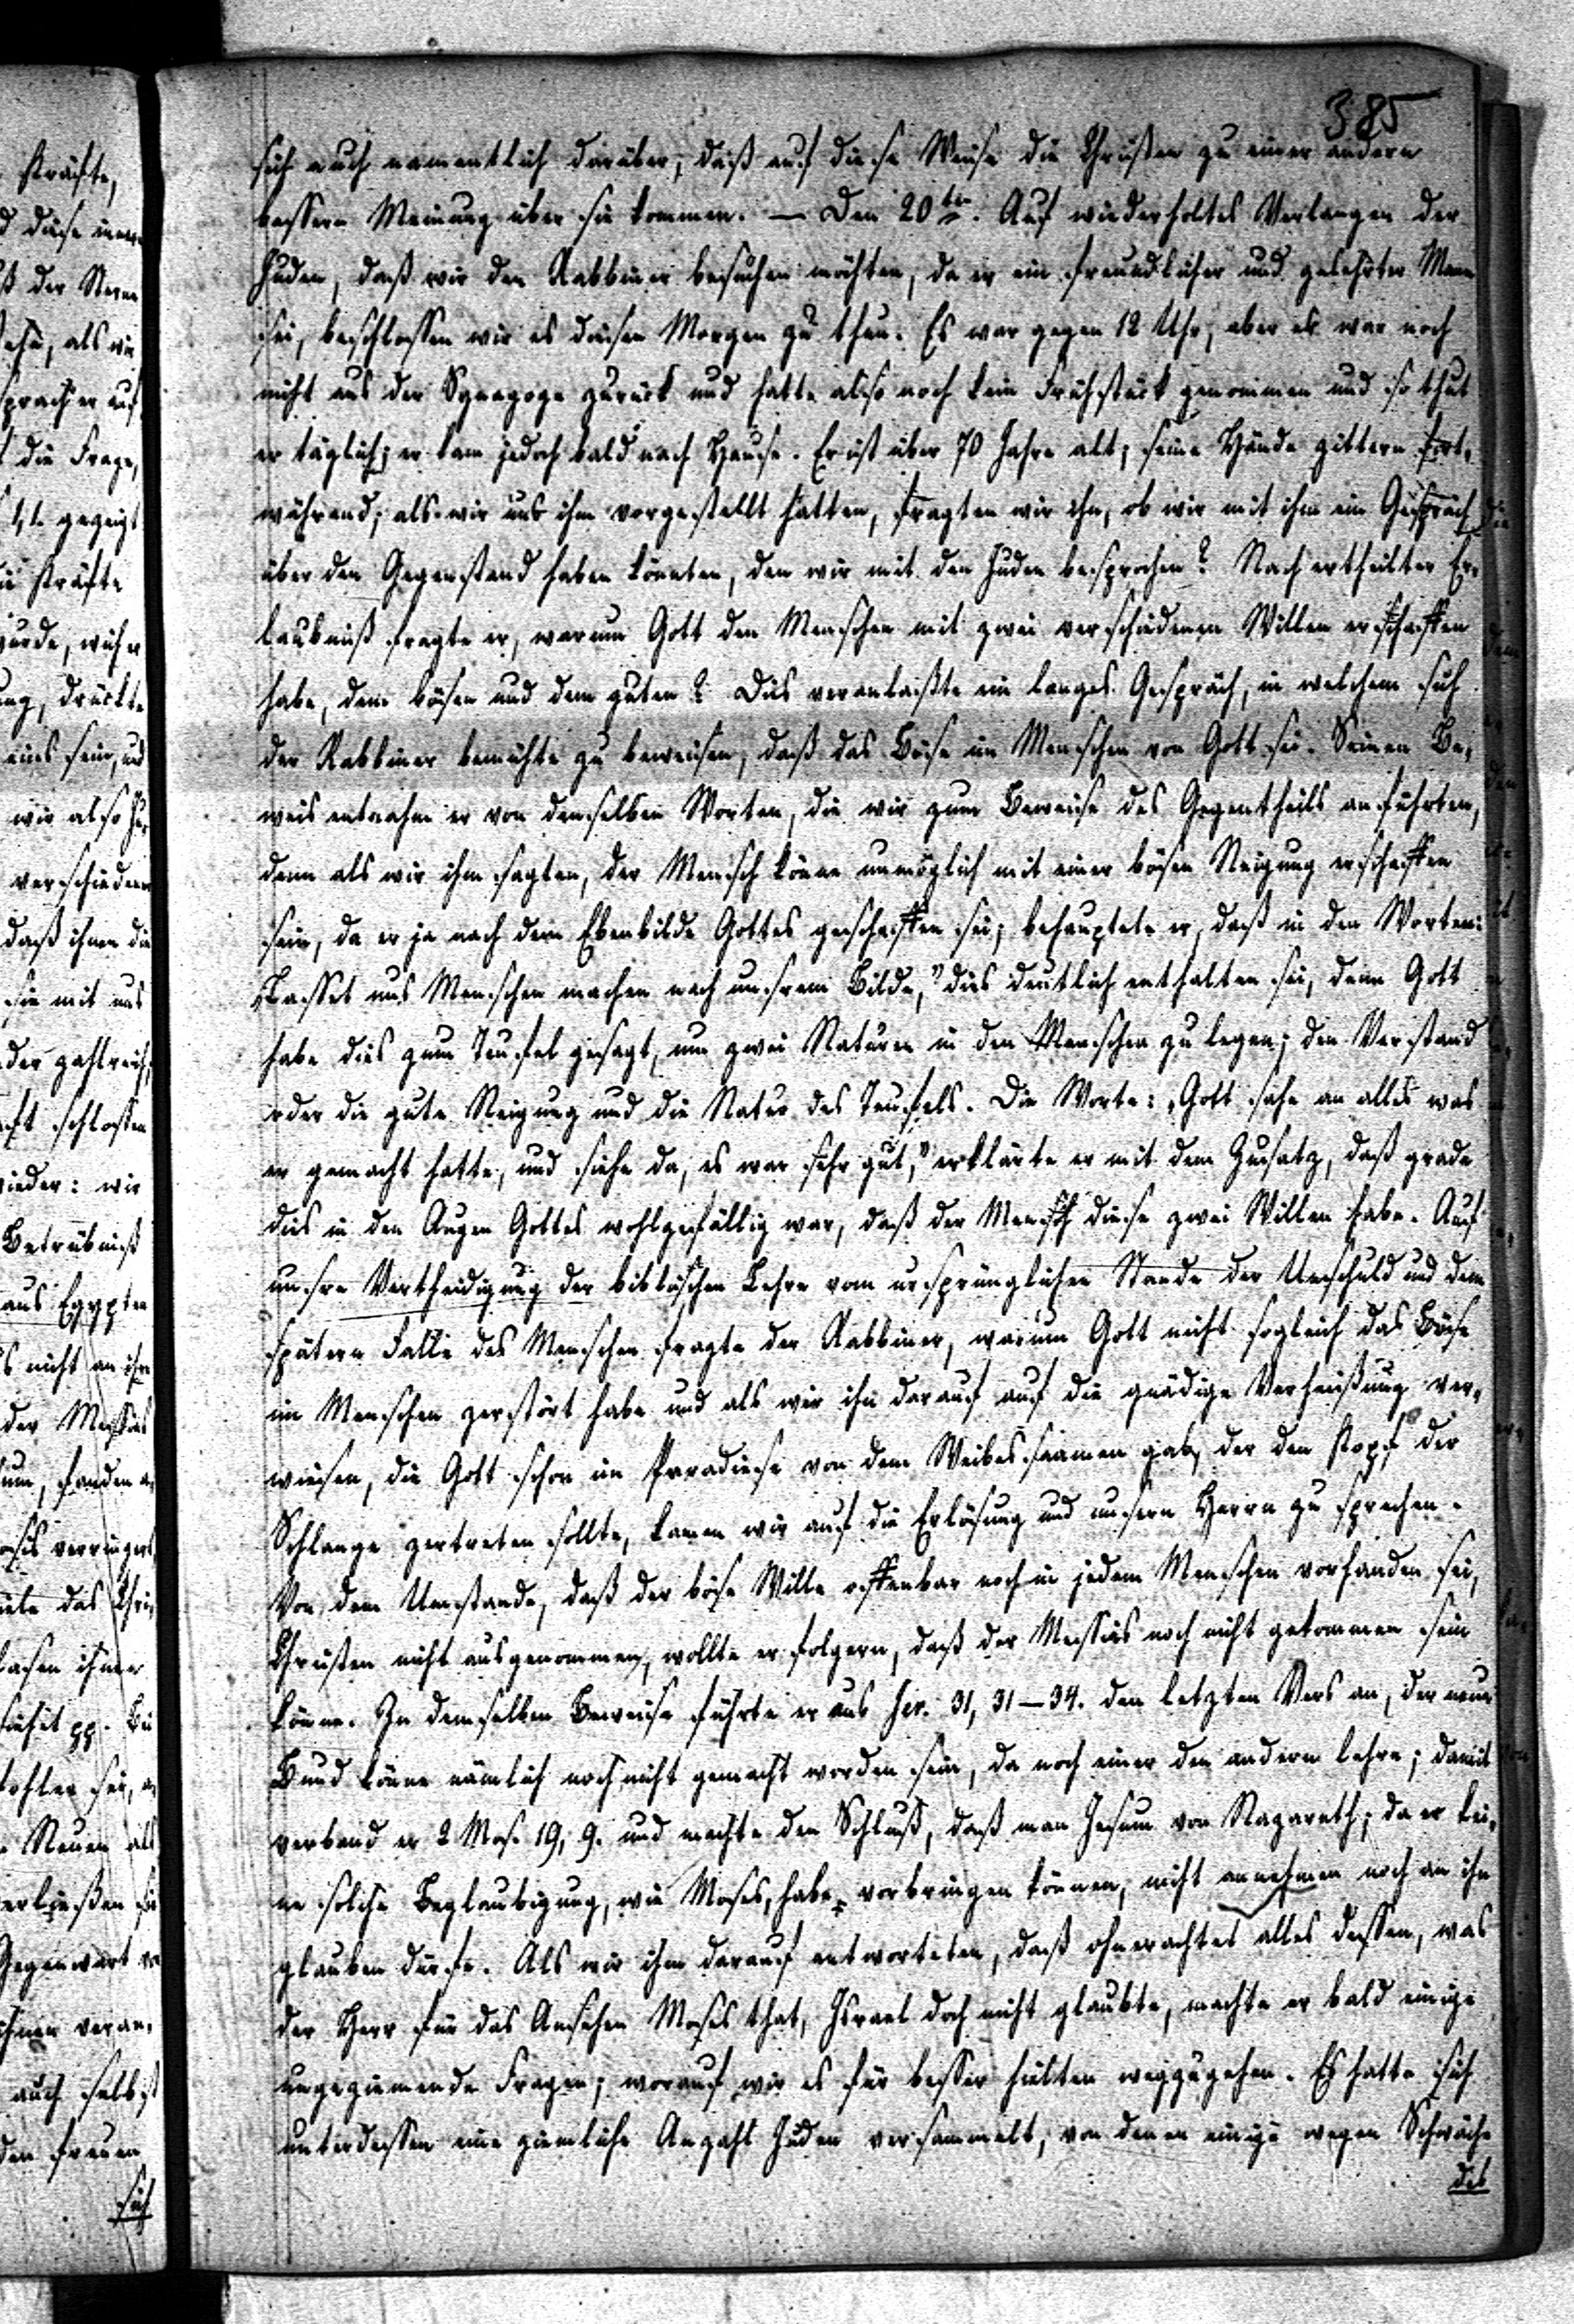 385
sich auch namentlich darüber, daß auf diese Weise die Christen zu einer andern
bessern Meinung über sie kommen. — Den 20ten. Auf wiederholtes Verlangen der
Juden, daß wir den Rabbiner besuchen möchten, da er ein freundlicher und gelehrter Mann
sei, beschlossen wir es diesen Morgen zu thun. Es war gegen 12 Uhr, aber er war noch
nicht aus der Synagoge zurück und hatte also noch kein Frühstück genommen und so thut
er täglich; er kam jedoch bald nach Hause. Er ist über 70 Jahre alt, seine Hände zittern fort-
während; als wir uns ihm vorgestellt hatten, fragten wir ihn, ob wir mit ihm ein Gespräch
über den Gegenstand haben könnten, den wir mit den Juden besprochen? Nach ertheilter Er-
laubniß fragte er, warum Gott den Menschen mit zwei verschiedenen Willen erschaffen
habe, dem bösen und dem guten? Dies veranlaßte ein langes Gespräch, in welchem sich
der Rabbiner bemühte zu beweisen, daß das Böse im Menschen von Gott sei. Seinen Be-
weis entnahm er von denselben Worten, die wir zum Beweise des Gegentheils anführten,
denn als wir ihm sagten, der Mensch könne unmöglich mit einer bösen Neigung erschaffen
sein, da er ja nach dem Ebenbilde Gottes geschaffen sei, behauptete er, daß in den Worten:
„Lasset uns Menschen machen nach unserm Bilde," dies deutlich enthalten sei, denn Gott
habe dies zum Teufel gesagt, um zwei Naturen in den Menschen zu legen; den Verstand
oder die gute Neigung und die Natur des Teufels. Die Worte: „Gott sahe an alles was
er gemacht hatte, und siehe da, es war sehr gut," erklärte er mit dem Zusatz, daß grade
dies in den Augen Gottes wohlgefällig war, daß der Mensch diese zwei Willen habe. Auf
unsre Vertheidigung der biblischen Lehre vom ursprünglichen Stande der Unschuld und dem
spätern Falle des Menschen fragte der Rabbiner, warum Gott nicht sogleich das Böse
im Menschen zerstört habe und als wir ihn darauf auf die gnädige Verheißung ver-
wiesen, die Gott schon im Paradiese von dem Weibessaamen gab, der den Kopf der
Schlange zertreten sollte, kamen wir auf die Erlösung und unsern Herrn zu sprechen.
Von dem Umstande, daß der böse Wille offenbar noch in jedem Menschen vorhanden sei,
Christen nicht ausgenommen, wollte er folgern, daß der Messias noch nicht gekommen sein
könne. Zu demselben Beweise führte er aus Jer. 31, 31–34. den letzten Vers an, der neue
Bund könne nämlich noch nicht gemacht worden sein, da noch einer den andern lehre; damit
verband er 2 Mos. 19, 9. und machte den Schluß, daß man Jesum von Nazareth, da er kei-
ne solche Beglaubigung, wie Moses, habe vorbringen können, nicht annehmen noch an ihn
glauben dürfe. Als wir ihm darauf antworteten, daß ohnerachtet alles dessen, was
der Herr für das Ansehen Moses that, Israel doch nicht glaubte, machte er bald einige
ungeziemende Fragen; worauf wir es für besser hielten wegzugehen. Es hatte sich
unterdessen eine ziemliche Anzahl Juden versammelt, von denen einige wegen Schwäche
des